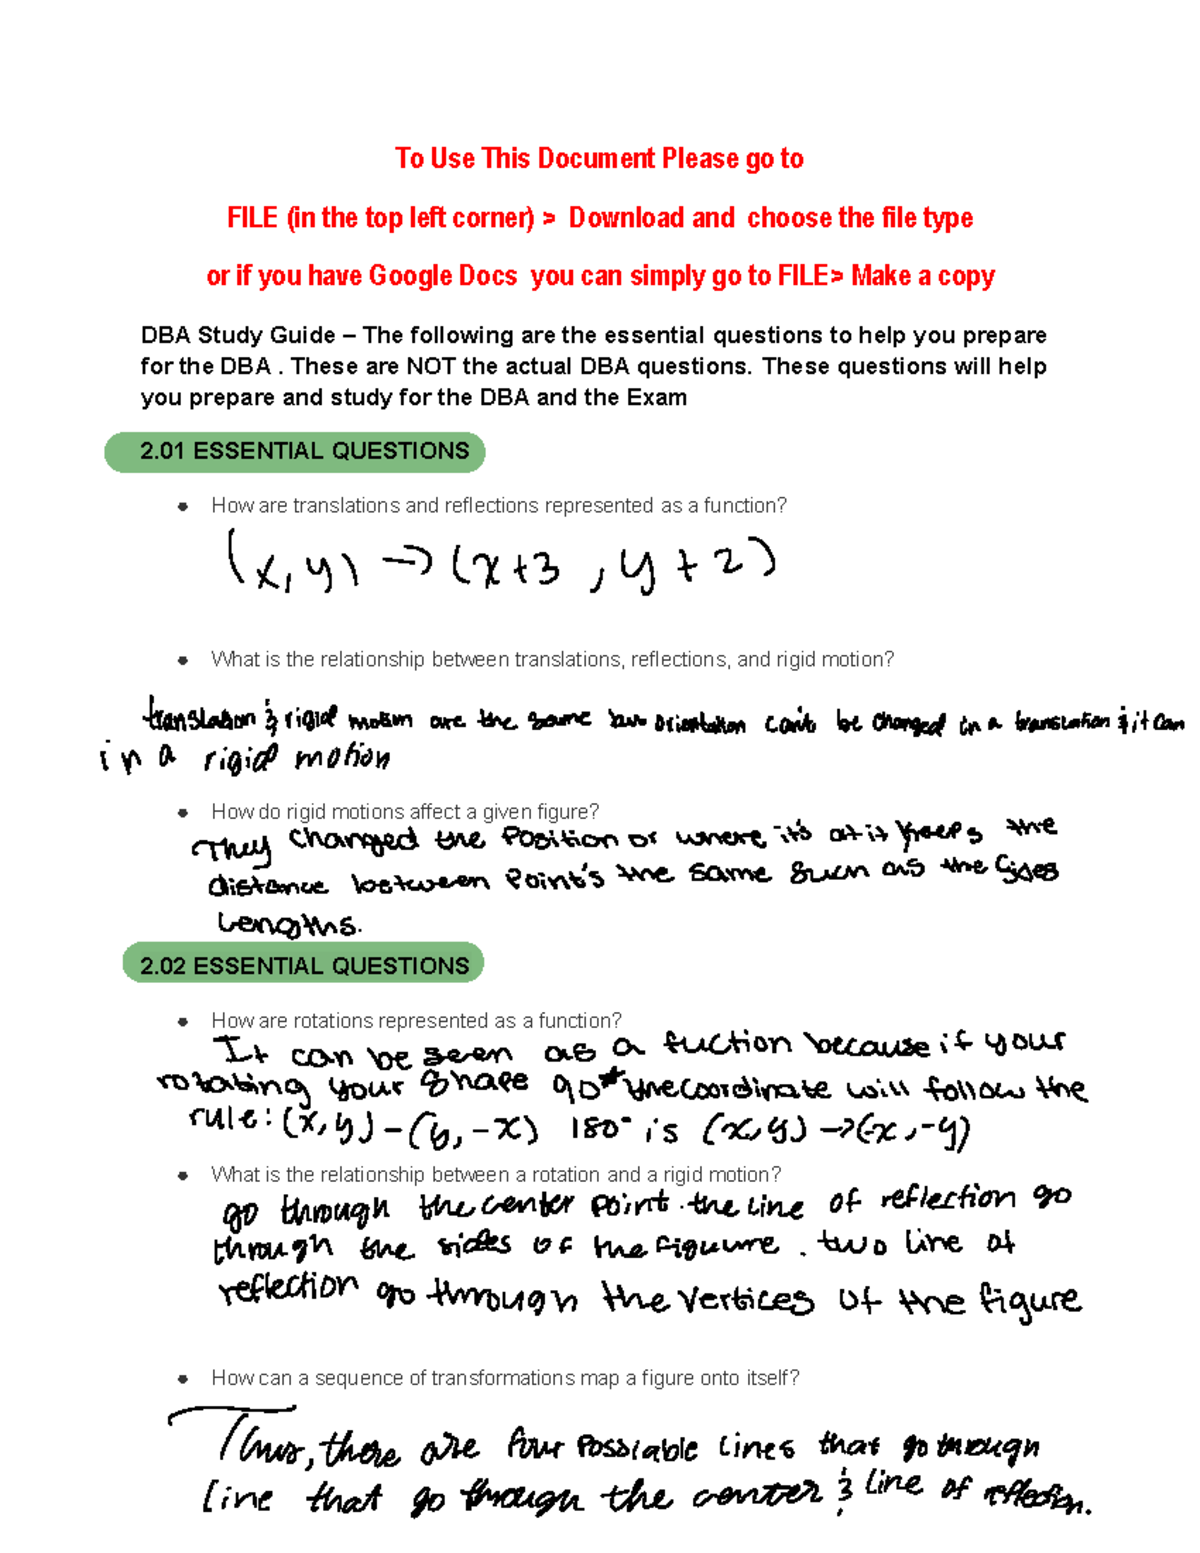 To Use This Document Please go to
FILE (in the top left corner) > Download and choose the file type
or if you have Google Docs you can simply go to FILE> Make a copy
DBA Study Guide – The following are the essential questions to help you prepare
for the DBA . These are NOT the actual DBA questions. These questions will help
you prepare and study for the DBA and the Exam
2.01 ESSENTIAL QUESTIONS
● How are translations and reflections represented as a function?
(x,y) → (x+3 , y+2)
● What is the relationship between translations, reflections, and rigid motion?
translation & rigid motion are the same but orientation can't be changed in a translation & it can
in a rigid motion
● How do rigid motions affect a given figure?
They changed the position or where it's at it keeps the
distance between point's the same such as the
Lengths.
2.02 ESSENTIAL QUESTIONS
● How are rotations represented as a function?
It can be seen as a fuction because if your
rotating your shape 90° the coordinate will follow the
rule: (x,y) – (y,-x) 180° is (x,y) → (-x,-y)
● What is the relationship between a rotation and a rigid motion?
go through the center point. the line of reflection go
through the sides of the figuure. two line of
reflection go through the vertices of the figure
● How can a sequence of transformations map a figure onto itself?
Thus, there are four possiable lines that go through
line that go through the center & line of reflection.